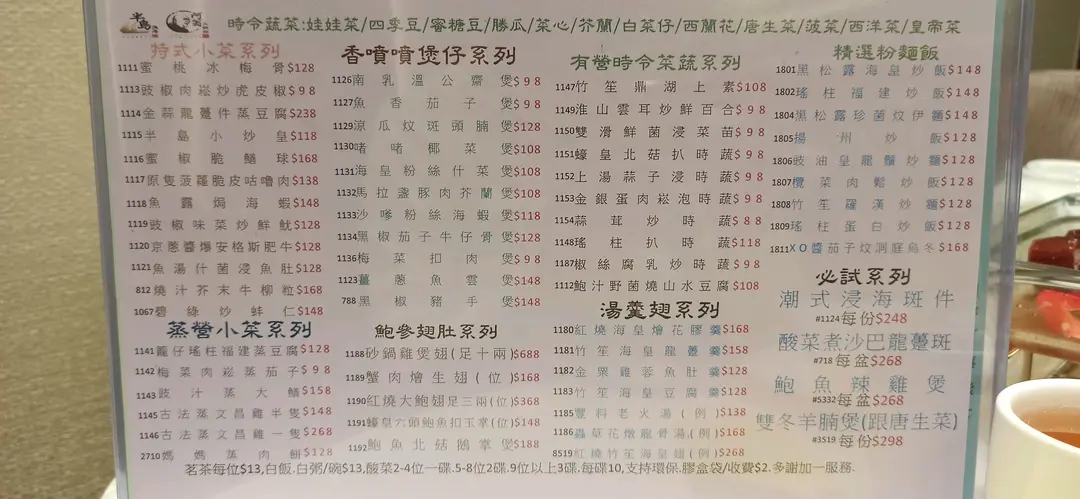 時令蔬菜:娃娃菜/四季豆/蜜糖豆/勝瓜/菜心/芥蘭/白菜仔/西蘭花/唐生菜/菠菜/西洋菜/皇帝菜
特式小菜系列
1111蜜桃冰梅骨$128
1113豉椒肉崧炒虎皮椒$98
1114金蒜龍躉件蒸豆腐$238
1115半島小炒皇$118
1116蜜椒脆鱔球$168
1117原隻菠蘿脆皮咕嚕肉$138
1118魚露焗海蝦$148
1119豉椒味菜炒鮮魷$128
1120京蔥醬爆安格斯肥牛$128
1121魚湯什菌浸魚肚$128
812燒汁芥末牛柳粒$168
1067碧綠炒蚌仁$148
蒸營小菜系列
1141籠仔瑤柱福建蒸豆腐$128
1142梅菜肉崧蒸茄子$98
1143豉汁蒸大鱔$158
1145古法蒸文昌雞半隻$148
1146古法蒸文昌雞一隻$268
2710媽媽蒸肉餅$128
香噴噴煲仔系列
1126南乳溫公齋煲$98
1127魚香茄子煲$98
1129涼瓜炆斑頭腩煲$128
1130啫啫椰菜煲$108
1131海皇粉絲什菜煲$108
1132馬拉盞豚肉芥蘭煲$108
1133沙嗲粉絲海蝦煲$118
1134黑椒茄子牛仔骨煲$128
1136梅菜扣肉煲$98
1123薑蔥魚雲煲$148
788黑椒豬手煲$148
鮑參翅肚系列
1188砂鍋雞煲翅(足十兩)$688
1189蟹肉燴生翅(位)$168
1190紅燒大鮑翅足三兩(位)$368
1191蠔皇六頭鮑魚扣玉掌(位)$148
1192鮑魚北菇鵝掌煲$188
有營時令菜蔬系列
1147竹笙鼎湖上素$108
1149淮山雲耳炒鮮百合$98
1150雙滑鮮菌浸菜苗$98
1151蠔皇北菇扒時蔬$98
1152上湯蒜子浸時蔬$98
1153金銀蛋肉崧泡時蔬$98
1154蒜茸炒時蔬$88
1148瑤柱扒時蔬$118
1187椒絲腐乳炒時蔬$98
1112鮑汁野菌燒山水豆腐$108
湯羹翅系列
1180紅燒海皇燴花膠羹$168
1181竹笙海皇龍躉羹$158
1182金粟雞蓉魚肚羹$128
1183竹笙海皇豆腐羹$128
1185豐料老火湯(例)$138
1186蟲草花燉龍骨湯(例)$168
8519紅燒竹笙海皇翅(例)$268
精選粉麵飯
1801黑松露海皇炒飯$148
1802瑤柱福建炒飯$148
1804黑松露珍菌炆伊麵$148
1805揚州炒飯$128
1806豉油皇龍鬚炒麵$128
1807欖菜肉鬆炒飯$128
1808竹笙羅漢炒麵$128
1809瑤柱蛋白炒飯$128
1811XO醬茄子炆洞庭烏冬$168
必試系列
潮式浸海斑件
#1124每份$248
酸菜煮沙巴龍躉斑
#718每盆$268
鮑魚辣雞煲
#5332每盆$268
雙冬羊腩煲(跟唐生菜)
#3519每份$298
茗茶每位$13,白飯.白粥/碗$13,酸菜2-4位一碟.5-8位2碟.9位以上3碟.每碟10,支持環保.膠盒袋/收費$2.多謝加一服務.